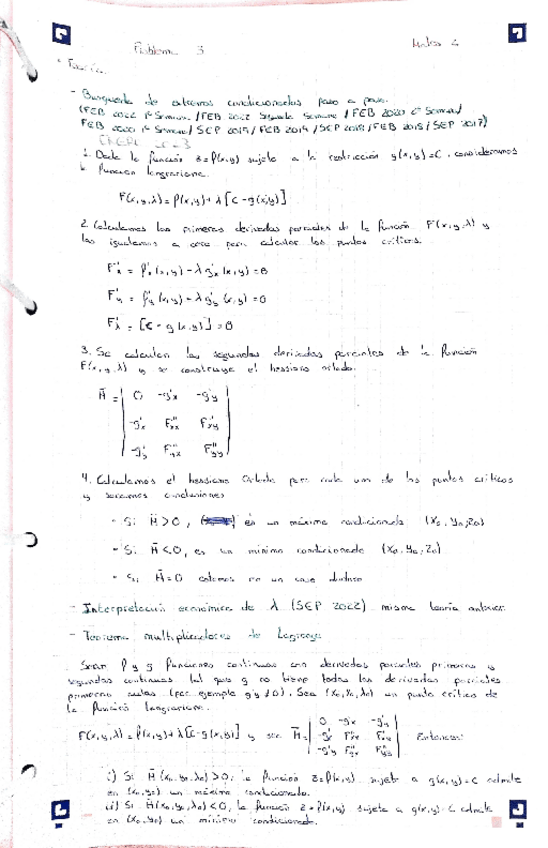 Problema 3
Mates 2
· Teoría
- Búsqueda de extremos condicionados paso a paso.
(FEB 2022 1ª Semana / FEB 2022 Segunda Semana / FEB 2020 2ª Semana /
FEB 2020 1ª Semana / SEP 2019 / FEB 2019 / SEP 2018 / FEB 2018 / SEP 2017)
1. Dada la función z=f(x,y) sujeta a la restricción g(x,y)=c, consideramos
la función lagrangiana.
F(x,y,λ) = f(x,y) + λ[c - g(x,y)]
2. Calculamos las primeras derivadas parciales de la función F(x,y,λ) y
las igualamos a cero para calcular los puntos críticos.
F'x = f'x(x,y) - λg'x(x,y) = 0
F'y = f'y(x,y) - λg'y(x,y) = 0
F'λ = [c - g(x,y)] = 0
3. Se calculan las segundas derivadas parciales de la función
F(x,y,λ) y se construye el hessiano orlado.
H̄ = | 0 -g'x -g'y |
| -g'x F''xx F''xy |
| -g'y F''yx F''yy |
4. Calculamos el hessiano orlado para cada uno de los puntos críticos
y sacamos conclusiones
- Si H̄>0, es un máximo condicionado (x0, y0, z0)
- Si H̄<0, es un mínimo condicionado (x0, y0, z0)
- Si H̄=0 estamos en un caso dudoso
- Interpretación económica de λ (SEP 2022) misma teoría anterior
- Teorema multiplicadores de Lagrange
Sean f y g funciones continuas con derivadas parciales primeras y
segundas continuas tal que g no tiene todas las derivadas parciales
primeras nulas (por ejemplo g'y≠0). Sea (x0, y0, λ0) un punto crítico de
la función lagrangiana.
F(x,y,λ) = f(x,y) + λ[c - g(x,y)] y sea H̄ = | 0 -g'x -g'y | Entonces:
| -g'x F''xx F''xy |
| -g'y F''yx F''yy |
i) Si H̄(x0, y0, λ0)>0, la función z=f(x,y) sujeta a g(x,y)=c admite
en (x0, y0) un máximo condicionado.
ii) Si H̄(x0, y0, λ0)<0, la función z=f(x,y) sujeta a g(x,y)=c admite
en (x0, y0) un mínimo condicionado.